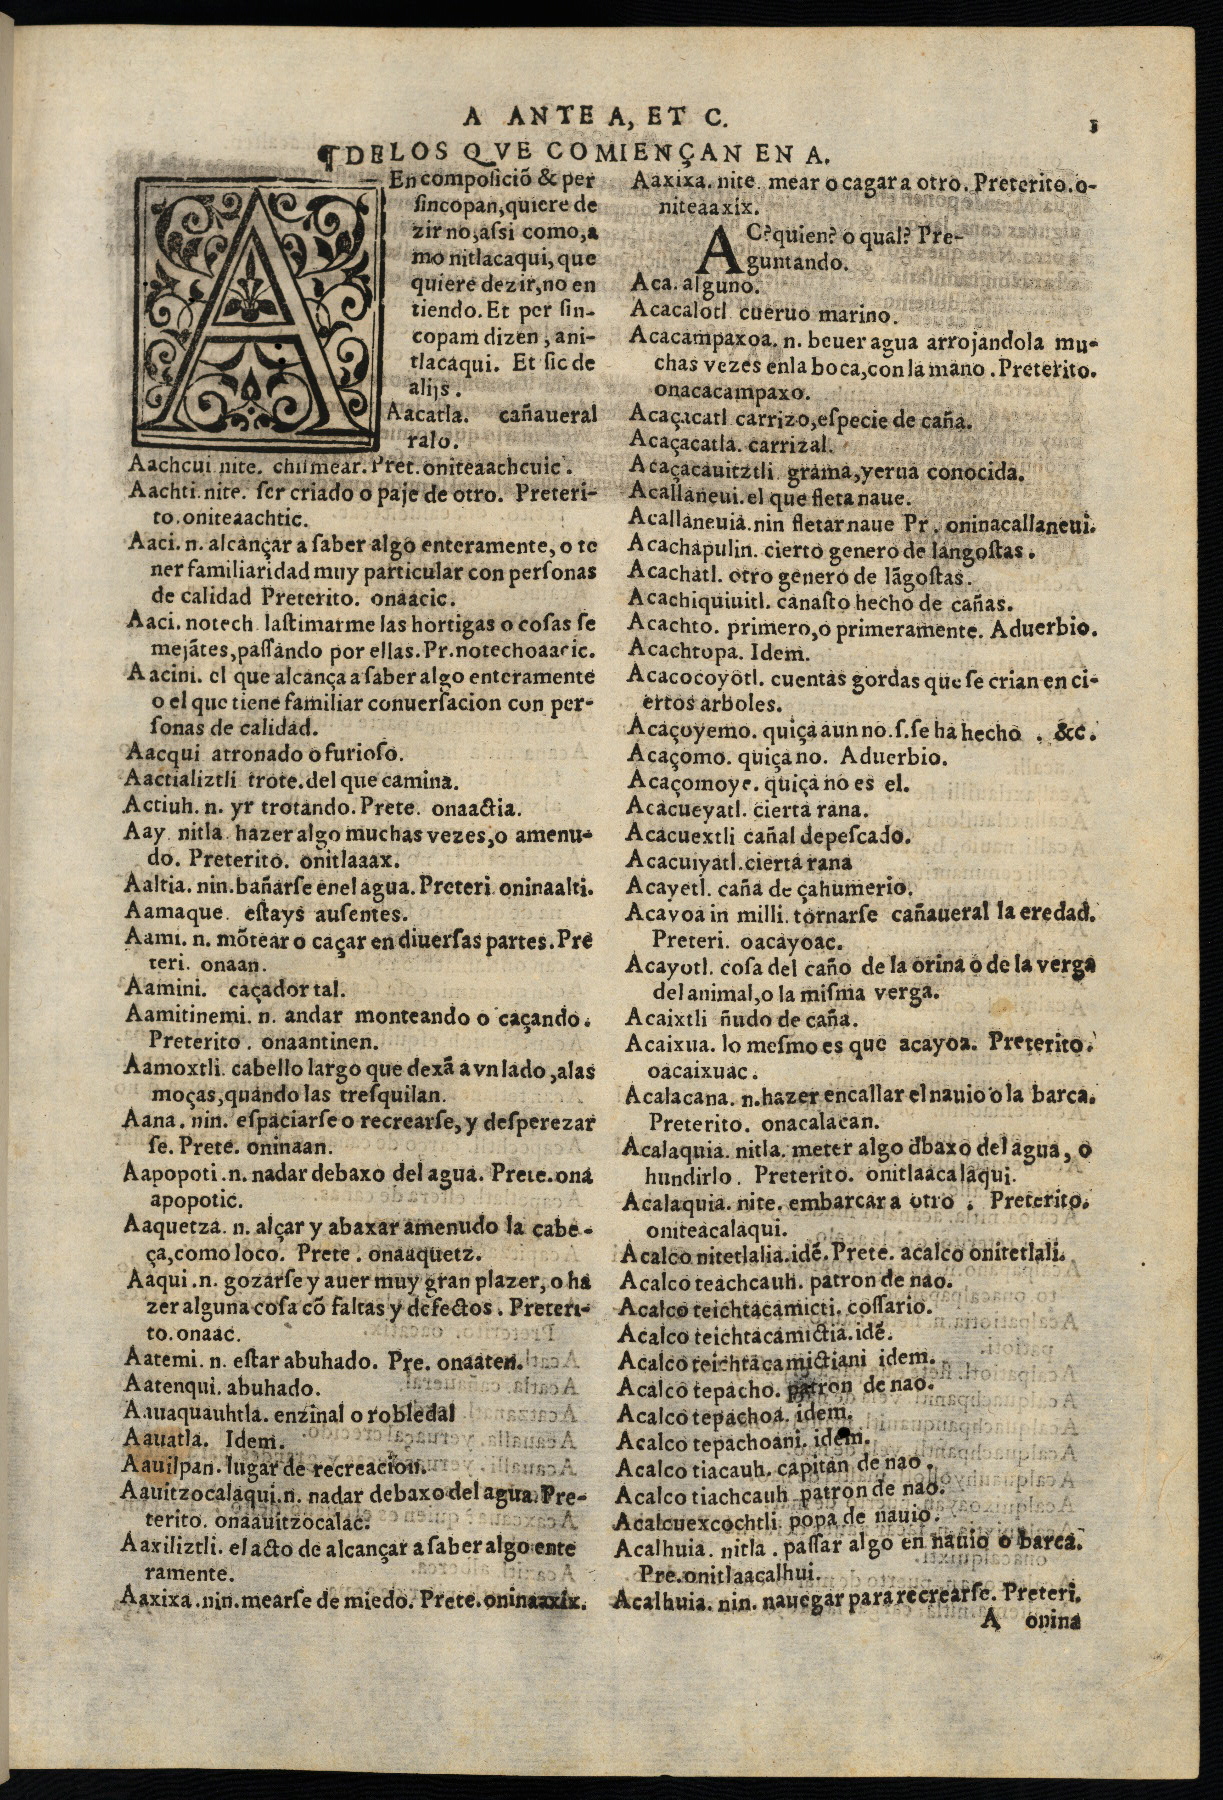 A ANTE A, ET C.
1
¶DELOS QVE COMIENÇAN EN A.
A En composiciõ & per
sincopan, quiere de
zir no, assi como, a
mo nitlacaqui, que
quiere dezir, no en
tiendo. Et per sin-
copam dizen, ani-
tlacaqui. Et sic de
alijs.
Aacatla. cañaueral
ralo.
Aachcui nite. chismear. Pret. oniteaachcuic.
Aachti. nite. ser criado o paje de otro. Preteri-
to. oniteaachtic.
Aaci. n. alcançar a saber algo enteramente, o te
ner familiaridad muy particular con personas
de calidad Preterito. onaacic.
Aaci. notech lastimarme las hortigas o cosas se
mejãtes, passando por ellas. Pr. notechoaacic.
Aacini. el que alcança a saber algo enteramente
o el que tiene familiar conuersacion con per-
sonas de calidad.
Aacqui atronado o furioso.
Aactializtli trote. del que camina.
Actiuh. n. yr trotando. Prete. onaactia.
Aay nitla hazer algo muchas vezes, o amenu-
do. Preterito. onitlaaax.
Aaltia. nin. bañarse enel agua. Preteri oninaalti.
Aamaque estays ausentes.
Aami. n. mõtear o caçar en diuersas partes. Pre
teri. onaan.
Aamini. caçador tal.
Aamitinemi. n. andar monteando o caçando.
Preterito. onaantinen.
Aamoxtli. cabello largo que dexã a vn lado, alas
moças, quando las tresquilan.
Aana. nin. espaciarse o recrearse, y desperezar
se. Prete. oninaan.
Aapopoti. n. nadar debaxo del agua. Prete. ona
apopotic.
Aaquetza. n. alçar y abaxar amenudo la cabe-
ça, como loco. Prete. onaaquetz.
Aaqui. n. gozarse y auer muy gran plazer, o ha
zer alguna cosa cõ faltas y defectos. Preteri-
to. onaac.
Aatemi. n. estar abuhado. Pre. onaaten.
Aatenqui. abuhado.
Aauaquauhtla. enzinal o robledal
Aauatla. Idem.
Aauilpan. lugar de recreacion.
Aauitzocalaqui. n. nadar debaxo del agua. Pre-
terito. onaauitzocalac.
Aaxiliztli. el acto de alcançar a saber algo ente
ramente.
Aaxixa. nin. mearse de miedo. Prete. oninaaxix.
Aaxixa. nite. mear o cagar a otro. Preterito. o-
niteaaxix.
AC? quien? o qual? Pre-
guntando.
Aca. alguno.
Acacalotl cueruo marino.
Acacampaxoa. n. beuer agua arrojandola mu-
chas vezes enla boca, con la mano. Preterito.
onacacampaxo.
Acaçacatl carrizo, especie de caña.
Acaçacatla. carrizal.
Acaçacauitztli grama, yerua conocida.
Acallaneui. el que fleta naue.
Acallaneuia. nin fletar naue Pr. oninacallaneui.
Acachapulin. cierto genero de langostas.
Acachatl. otro genero de lãgostas.
Acachiquiuitl. canasto hecho de cañas.
Acachto. primero, o primeramente. Aduerbio.
Acachtopa. Idem.
Acacocoyotl. cuentas gordas que se crian en ci-
ertos arboles.
Acaçoyemo. quiça aun no. s. se ha hecho. &c.
Acaçomo. quiça no. Aduerbio.
Acaçomoye. quiça no es el.
Acacueyatl. cierta rana.
Acacuextli cañal de pescado.
Acacuiyatl. cierta rana
Acayetl. caña de çahumerio.
Acayoa in milli. tornarse cañaueral la eredad.
Preteri. oacayoac.
Acayotl. cosa del caño de la orina o de la verga
del animal, o la misma verga.
Acaixtli ñudo de caña.
Acaixua. lo mesmo es que acayoa. Preterito.
oacaixuac.
Acalacana. n. hazer encallar el nauio o la barca.
Preterito. onacalacan.
Acalaquia. nitla. meter algo đbaxo del agua, o
hundirlo. Preterito. onitlaacalaqui.
Acalaquia. nite. embarcar a otro. Preterito.
oniteacalaqui.
Acalco nitetlalia. idẽ. Prete. acalco onitetlali.
Acalco teachcauh. patron de nao.
Acalco teichtacamicti. cossario.
Acalco teichtacamictia. idẽ.
Acalco teichtacamictiani idem.
Acalco tepacho. patron de nao.
Acalco tepachoa. idem.
Acalco tepachoani. idem.
Acalco tiacauh. capitan de nao.
Acalco tiachcauh patron de nao.
Acalcuexcochtli popa de nauio.
Acalhuia. nitla. passar algo en nauio o barca.
Pre. onitlaacalhui.
Acalhuia. nin. nauegar para recrearse. Preteri.
A onina